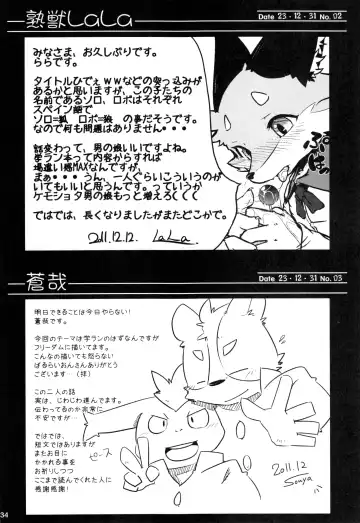 熟獣LaLa
Date 23・12・31 No.02
みなさま、お久しぶりです。
ららです。
タイトルひでぇｗｗなどの突っ込みが
あるかと思いますが、この子たちの
名前であるソロ、ロボはそれぞれ
スペイン語で
ソロ=狐 ロボ=狼 の事だそうです。
なので何も問題はありません・・・
話変わって、男の娘いいですよね。
学ラン本って内容からすれば
場違い感MAXなんですが、
まぁ・・・うん、一人ぐらいこういうのが
いてもいいと思うんです。っていうか
ケモショタ男の娘もっと増えろくくく
ではでは、長くなりましたがまたどこかで。
2011.12.12. LaLa
蒼哉
Date 23・12・31 No.03
明日できることは今日やらない!
蒼哉です。
今回のテーマは学ランのはずなんですが
フリーダムに描いてます。
こんなの描いても怒らない
ぱるらいおんさんありがとう
ございます…(拝)
この二人の話
実は、じわじわ進んでます。
伝わってるのか非常に
不安ですが…
ではでは、
短文ではありますが
またお目に
かかれる事を
お祈りしつつ
ここまで読んでくれた人に
感謝感謝!
ピース
2011.12
Souya
34